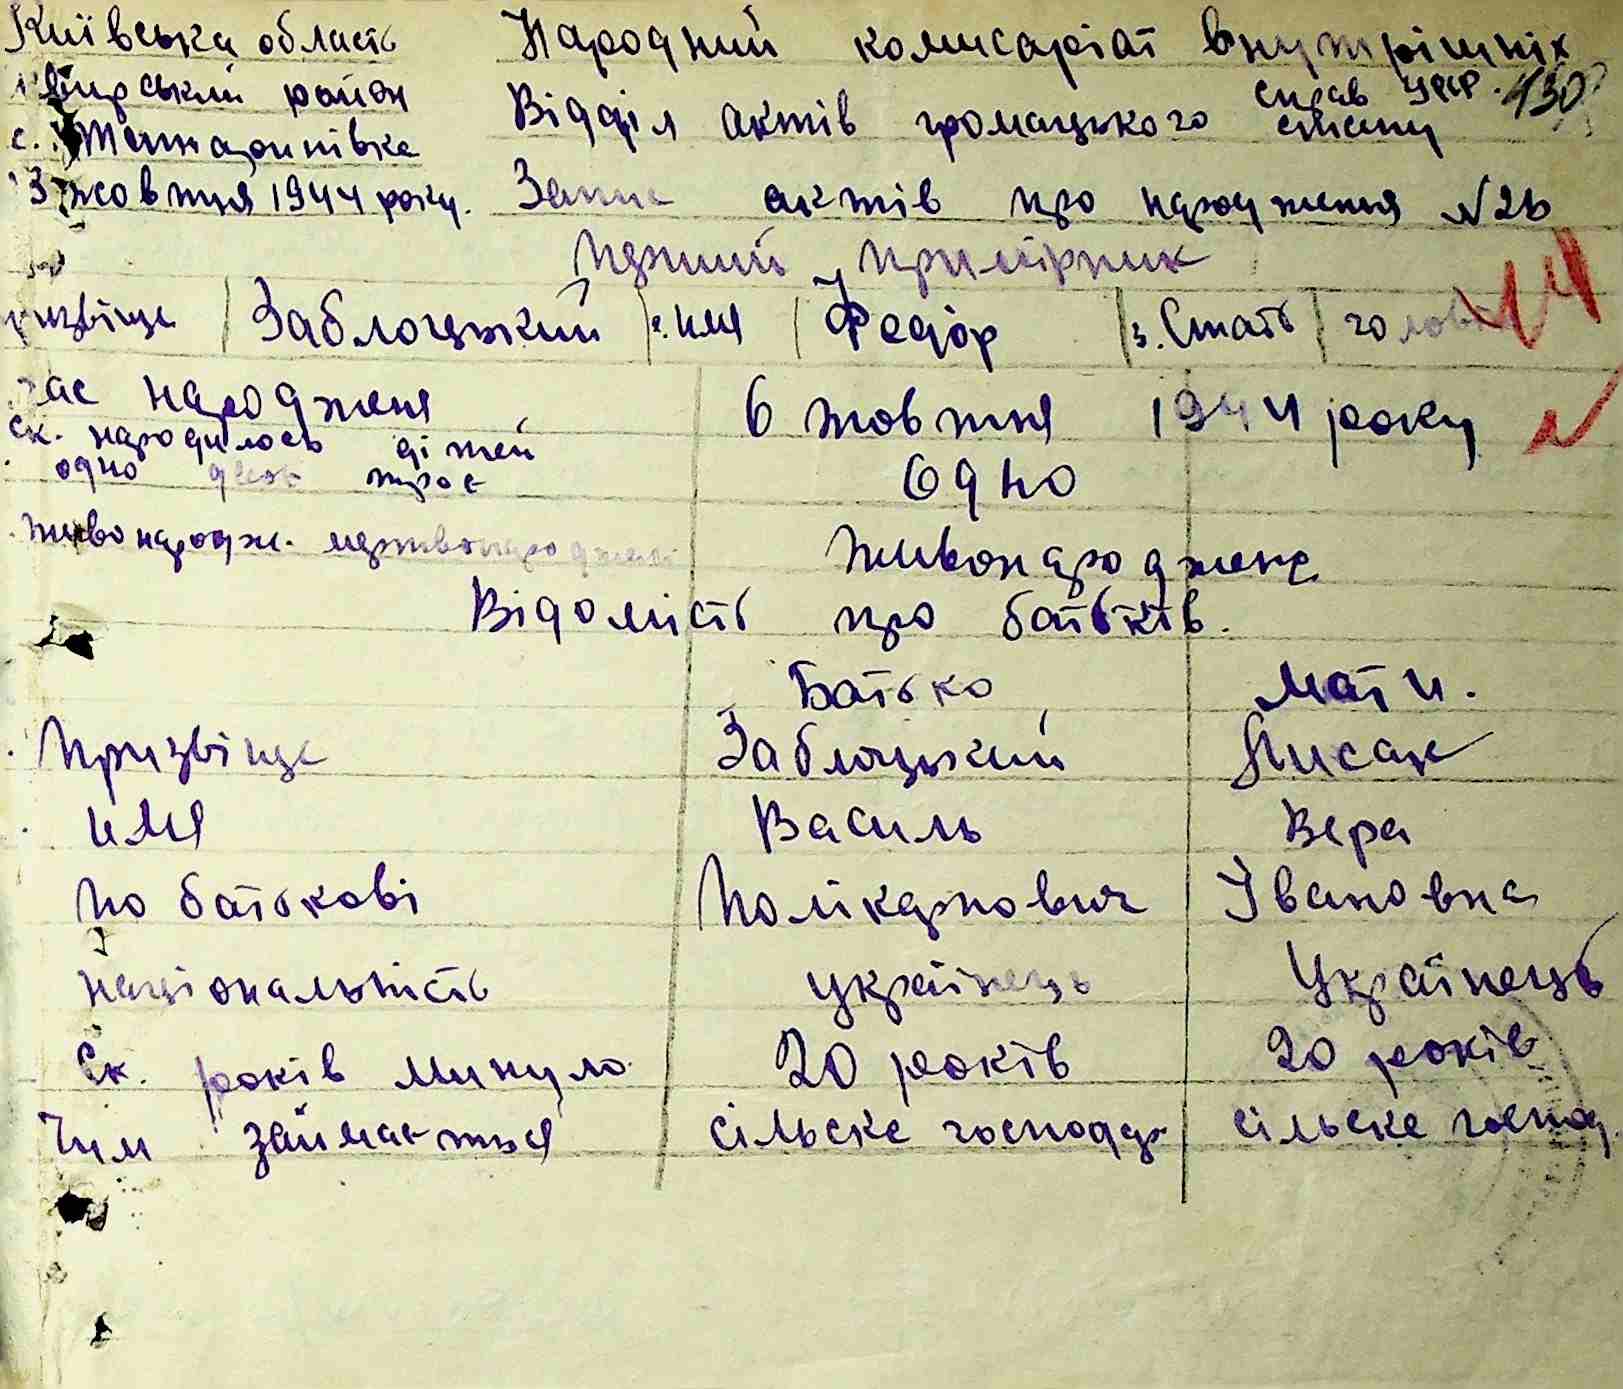 Київська область Народний комисаріат внутрішніх
район справ УРСР. 130
Відділ актів громацького стану
с.
3 жовтня 1944 року. Запис актів про народження №26
перший примірник
призвіще Заблоцький 2. имя Федір 3. Стать
час народженя 6 жовтня 1944 року
ск. народилось дітей
одно двоє троє Одно
живонародж. мертвонароджені живонароджене
Відомість про батьків.
Батько мати.
Призвіще Заблоцький Лисак
имя Василь Вера
по батькові Полікарпович Івановна
національність українець Українець
Ск. років минуло 20 років 20 років
Чим займається сільске господар сільске господ.